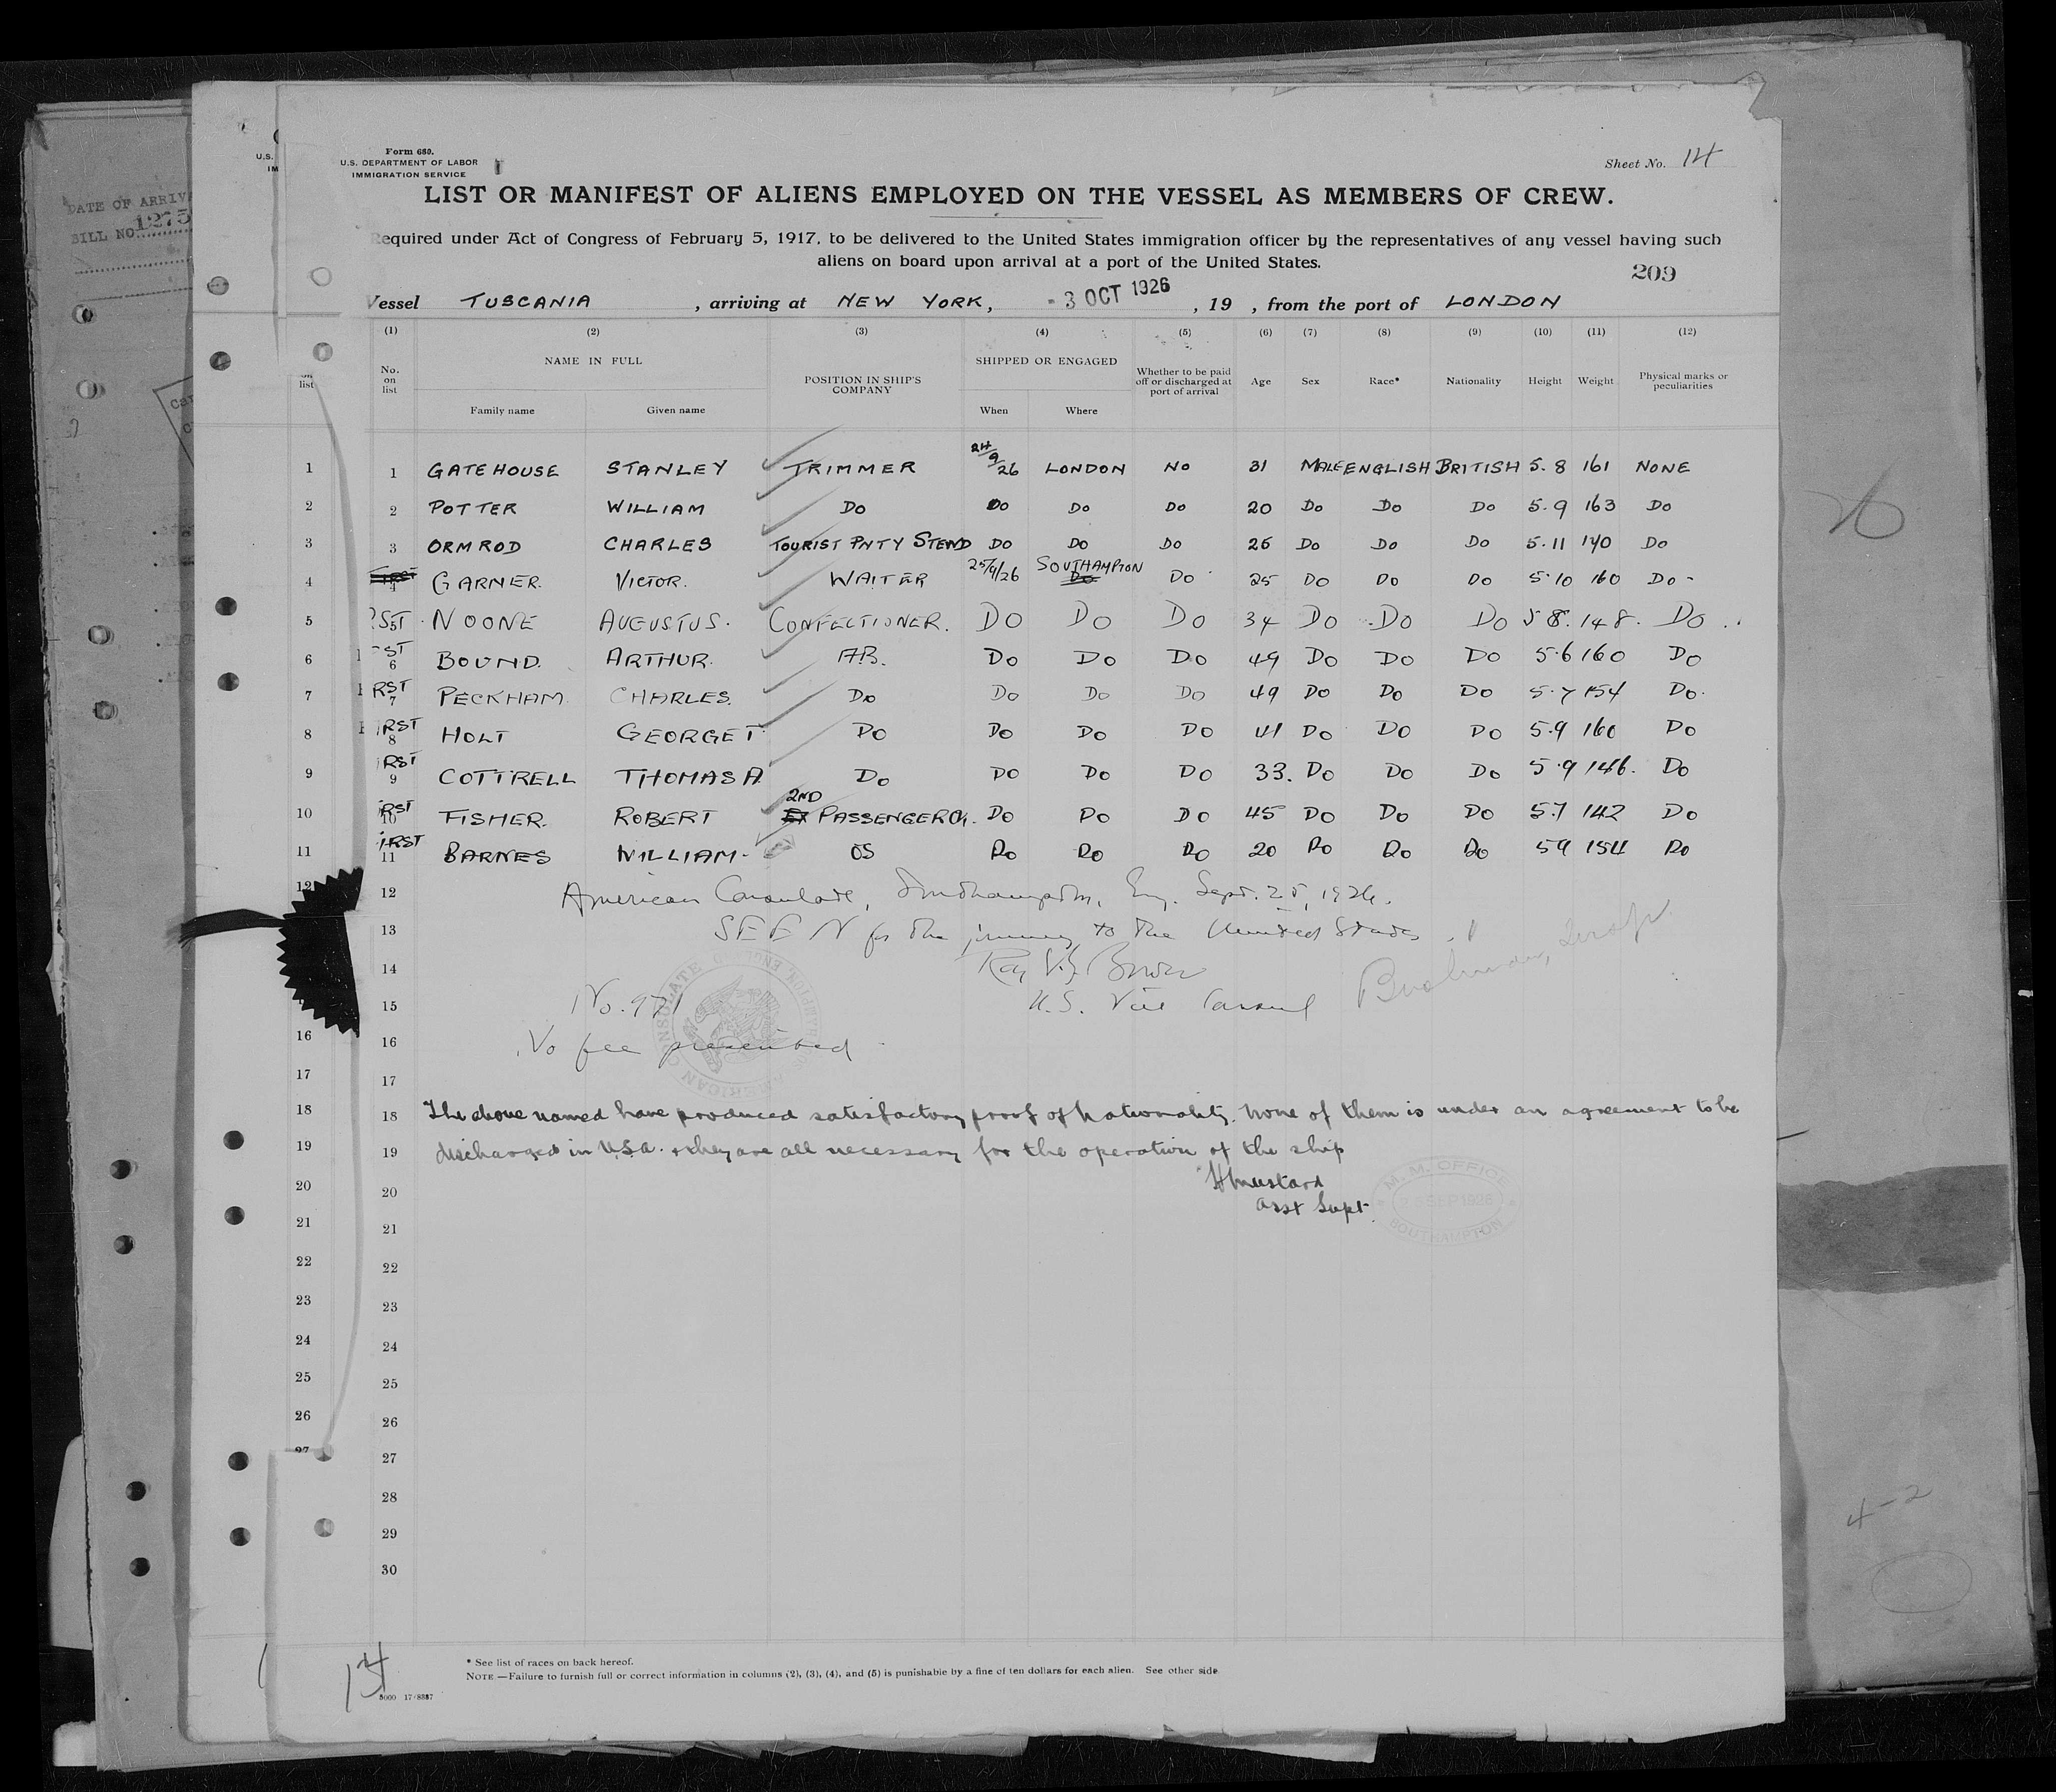 DATE OF ARRIV
BILL NO. 1275
Form 680.
U.S. DEPARTMENT OF LABOR
IMMIGRATION SERVICE
Sheet No. 14
LIST OR MANIFEST OF ALIENS EMPLOYED ON THE VESSEL AS MEMBERS OF CREW.
Required under Act of Congress of February 5, 1917, to be delivered to the United States immigration officer by the representatives of any vessel having such
aliens on board upon arrival at a port of the United States.
209
Vessel TUSCANIA , arriving at NEW YORK, - 3 OCT 1926 , 19 , from the port of LONDON
(1) (2) (3) (4) (5) (6) (7) (8) (9) (10) (11) (12)
No. on list NAME IN FULL Family name Given name POSITION IN SHIP'S COMPANY SHIPPED OR ENGAGED When Where Whether to be paid off or discharged at port of arrival Age Sex Race* Nationality Height Weight Physical marks or peculiarities
1 GATEHOUSE STANLEY TRIMMER 24/9/26 LONDON NO 31 MALE ENGLISH BRITISH 5.8 161 NONE
2 POTTER WILLIAM DO DO DO DO 20 DO DO DO 5.9 163 DO
3 ORMROD CHARLES TOURIST PNTY STEWD DO DO DO 26 DO DO DO 5.11 140 DO
4 GARNER. VICTOR. WAITER 25/9/26 SOUTHAMPTON DO 25 DO DO DO 5.10 160 DO -
5 NOONE AUGUSTUS. CONFECTIONER. DO DO DO 34 DO DO DO 5 8. 148. DO
6 BOUND. ARTHUR. A.B. DO DO DO 49 DO DO DO 5.6 160 DO
RST 7 PECKHAM CHARLES. DO DO DO DO 49 DO DO DO 5.7 154 DO.
RST 8 HOLT GEORGE T DO DO DO DO 41 DO DO DO 5.9 160 DO
RST 9 COTTRELL THOMAS A DO DO DO DO 33. DO DO DO 5.9 146. DO
RST 10 FISHER. ROBERT 2ND PASSENGER Ck. DO DO DO 45 DO DO DO 5.7 142 DO
IRST 11 BARNES WILLIAM- OS DO DO DO 20 DO DO DO 5 9 154 DO
12 American Consulate, Southampton, Eng. Sept. 25, 1926.
13 SEEN for the journey to the United States
14
15 No. 971 U.S. Vice Consul
16 No fee prescribed
17
18 The above named have produced satisfactory proof of nationality. None of them is under an agreement to be
19 discharged in U.S.A. & they are all necessary for the operation of the ship
20 HMustard
Asst Supt.
M. M. OFFICE
SEP 1926
SOUTHAMPTON
21
22
23
24
25
26
27
28
29
30
* See list of races on back hereof.
NOTE.—Failure to furnish full or correct information in columns (2), (3), (4), and (5) is punishable by a fine of ten dollars for each alien. See other side
4-2